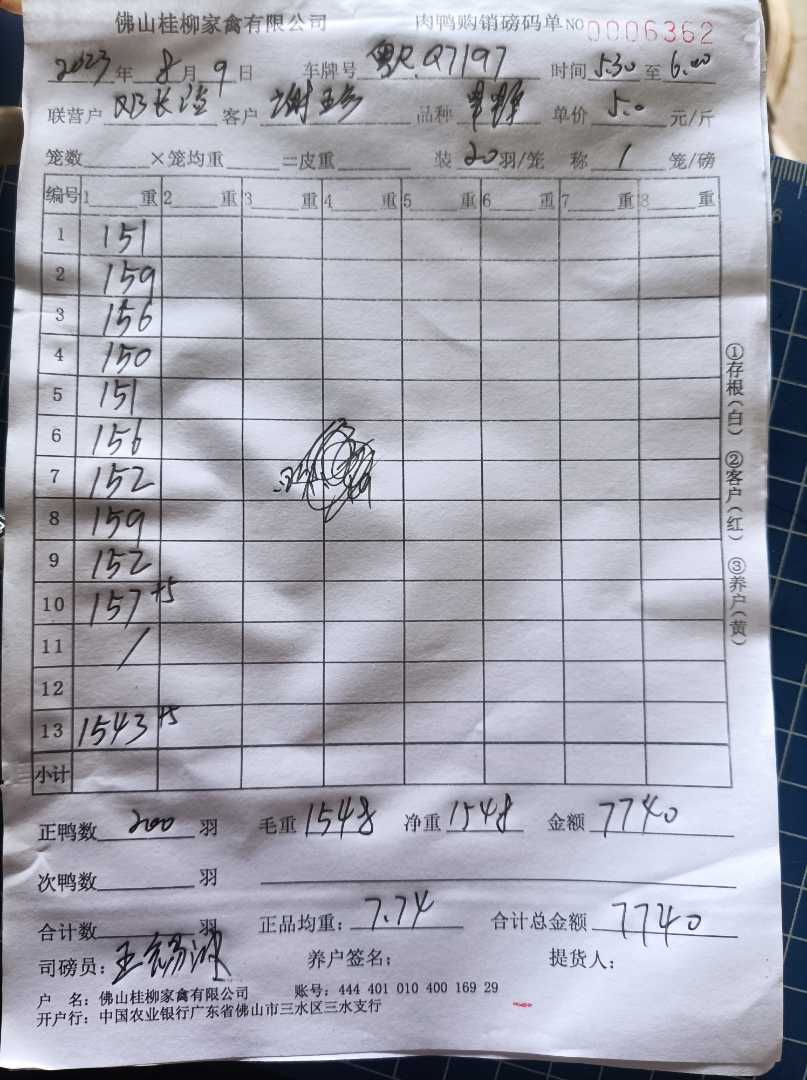 佛山桂柳家禽有限公司 肉鸭购销磅码单 NO 0006362
2023年 8月 9日 车牌号 粤R.Q7197 时间 5.30 至 6.00
联营户 客户 谢 品种 单价 5.0 元/斤
笼数 ×笼均重 =皮重 装 20 羽/笼 称 1 笼/磅
编号 1 重 2 重 3 重 4 重 5 重 6 重 7 重 8 重
1 151
2 159
3 156
4 150
5 151
6 156
7 152
8 159
9 152
10 157+5
11 /
12
13 1543+5
小计
正鸭数 200 羽 毛重 1548 净重 1548 金额 7740
次鸭数 羽
合计数 羽 正品均重: 7.74 合计总金额 7740
司磅员: 王 养户签名: 提货人:
户 名: 佛山桂柳家禽有限公司 账号: 444 401 010 400 169 29
开户行: 中国农业银行广东省佛山市三水区三水支行
①存根(白) ②客户(红) ③养户(黄)